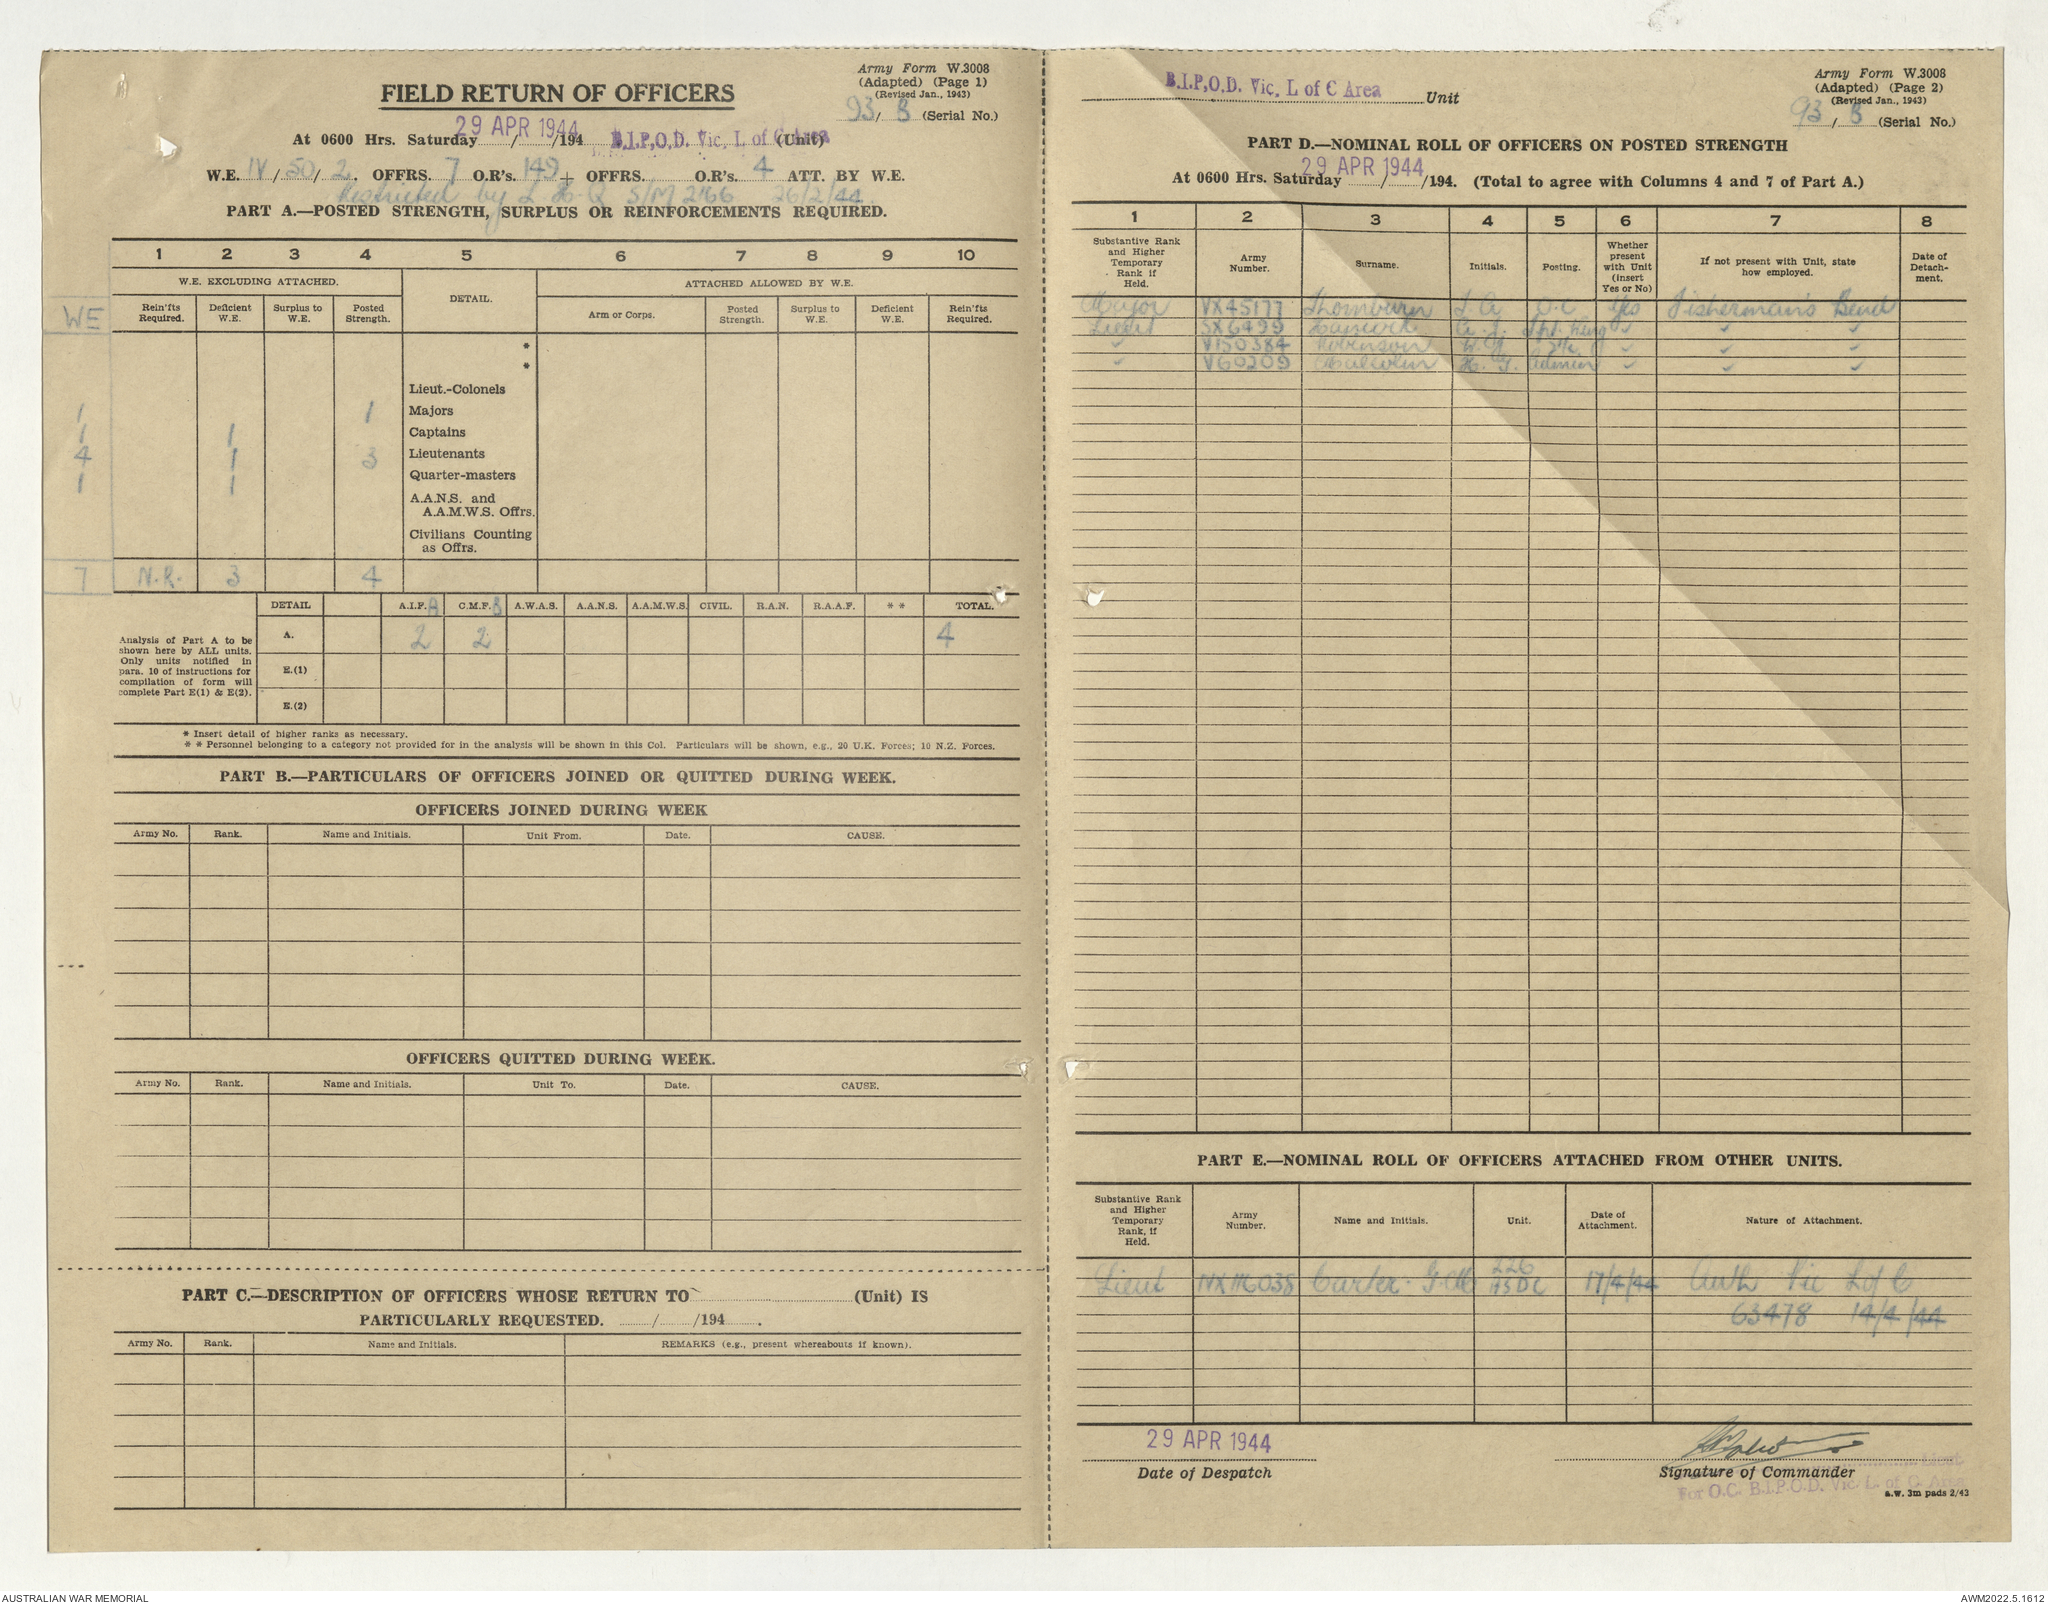 Army Form W.3008
(Adapted) (Page 1)
(Revised Jan., 1943)
93/ B (Serial No.)
FIELD RETURN OF OFFICERS
At 0600 Hrs. Saturday 29 APR 1944 /194 B.I.P.O.D. Vic. L of C Area (Unit)
W.E. IV / 50 / 2. OFFRS. 7 O.R's. 149 + OFFRS. O.R's. 4 ATT. BY W.E.
Restricted by L H Q S/M 2166 26/2/44
PART A.—POSTED STRENGTH, SURPLUS OR REINFORCEMENTS REQUIRED.
1 2 3 4 5 6 7 8 9 10
W.E. EXCLUDING ATTACHED. DETAIL. ATTACHED ALLOWED BY W.E.
WE Rein'fts Required. Deficient W.E. Surplus to W.E. Posted Strength. Arm or Corps. Posted Strength. Surplus to W.E. Deficient W.E. Rein'fts Required.
*
*
Lieut.-Colonels
1 1 Majors
1 1 Captains
4 1 3 Lieutenants
1 1 Quarter-masters
A.A.N.S. and
A.A.M.W.S. Offrs.
Civilians Counting
as Offrs.
7 N.R. 3 4
DETAIL A.I.F. A C.M.F. B A.W.A.S. A.A.N.S. A.A.M.W.S. CIVIL. R.A.N. R.A.A.F. * * TOTAL.
Analysis of Part A to be
shown here by ALL units.
Only units notified in
para. 10 of instructions for
compilation of form will
complete Part E(1) & E(2).
A. 2 2 4
E.(1)
E.(2)
* Insert detail of higher ranks as necessary.
* * Personnel belonging to a category not provided for in the analysis will be shown in this Col. Particulars will be shown, e.g., 20 U.K. Forces; 10 N.Z. Forces.
PART B.—PARTICULARS OF OFFICERS JOINED OR QUITTED DURING WEEK.
OFFICERS JOINED DURING WEEK
Army No. Rank. Name and Initials. Unit From. Date. CAUSE.
OFFICERS QUITTED DURING WEEK.
Army No. Rank. Name and Initials. Unit To. Date. CAUSE.
PART C.—DESCRIPTION OF OFFICERS WHOSE RETURN TO (Unit) IS
PARTICULARLY REQUESTED. / /194 .
Army No. Rank. Name and Initials. REMARKS (e.g., present whereabouts if known).
B.I.P.O.D. Vic. L of C Area Unit
Army Form W.3008
(Adapted) (Page 2)
(Revised Jan., 1943)
93 / B (Serial No.)
PART D.—NOMINAL ROLL OF OFFICERS ON POSTED STRENGTH
At 0600 Hrs. Saturday 29 APR 1944 /194. (Total to agree with Columns 4 and 7 of Part A.)
1 2 3 4 5 6 7 8
Substantive Rank and Higher Temporary Rank if Held. Army Number. Surname. Initials. Posting. Whether present with Unit (insert Yes or No) If not present with Unit, state how employed. Date of Detach-ment.
Major VX45177 Thornburn L A O.C Yes Fisherman's Bend
Lieut SX6499 Hancock
V150384 Robinson
V60209 Malcolm H. G. Admin
PART E.—NOMINAL ROLL OF OFFICERS ATTACHED FROM OTHER UNITS.
Substantive Rank and Higher Temporary Rank, if Held. Army Number. Name and Initials. Unit. Date of Attachment. Nature of Attachment.
Lieut NX116038 Carter. G M 226 ASDC 17/4/44 Auth Vic L of C
63478 14/4/44
29 APR 1944
Date of Despatch
Signature of Commander
Lieut
For O.C. B.I.P.O.D. Vic. L. of C. Area
A.W. 3m pads 2/43
AUSTRALIAN WAR MEMORIAL
AWM2022.5.1612